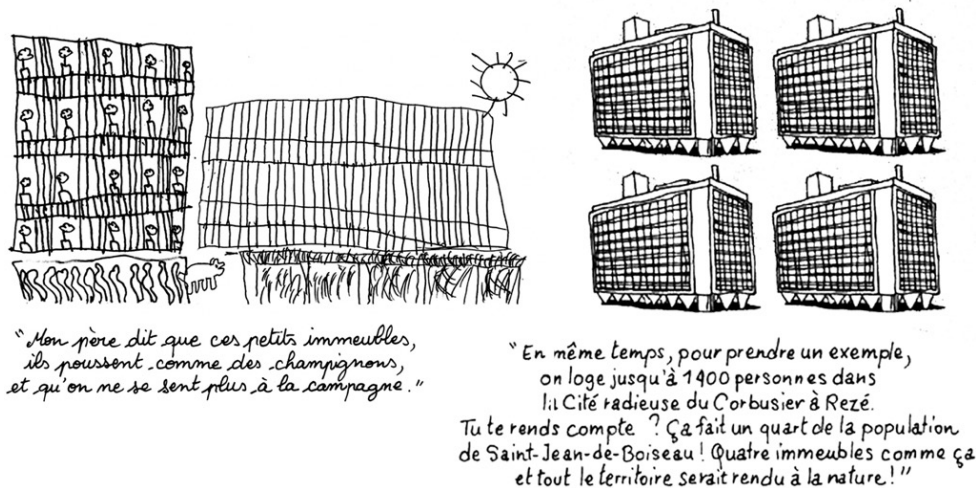 "Mon père dit que ces petits immeubles,
ils poussent comme des champignons,
et qu'on ne se sent plus à la campagne."
"En même temps, pour prendre un exemple,
on loge jusqu'à 1400 personnes dans
la Cité radieuse du Corbusier à Rezé.
Tu te rends compte ? Ça fait un quart de la population
de Saint-Jean-de-Boiseau ! Quatre immeubles comme ça
et tout le territoire serait rendu à la nature !"